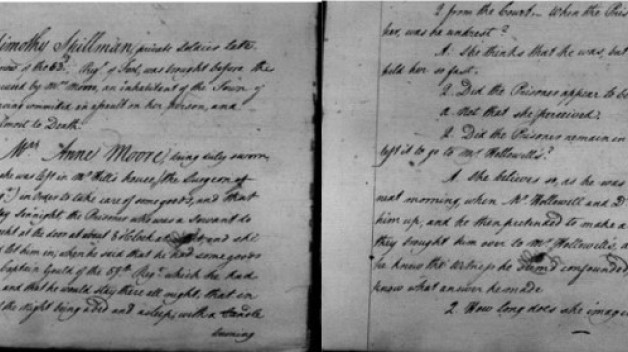 Timothy Skillman, private Soldier late
of the 63d Regt of Foot, was brought before the
used by Mrs Moore, an inhabitant of the Town of
having committed an assault on her person, and
almost to Death.
Mrs Anne Moore, being duly sworn
she was left in Mr Hill's house (the Surgeon of
) in order to take care of some goods, and that
day Sen'night, the Prisoner who was a Servant to
at the door at about 8 o'Clock at and she
let him in, when he said that he had some goods
Captain Gould of the 59th Regt which he had
and that he would stay there all night, that in
the Night being abed and asleep, with a Candle
burning
Q. from the Court— When the Pris
her, was he undrest?
A. She thinks that he was, but
held her so fast.
Q. Did the Prisoner appear to be
A. Not that she perceived.
Q. Did the Prisoner remain in
left it to go to Mr Hollowell's?
A. She believes so, as he was
next morning, when Mr Hollowell and D
him up, and he then pretended to make a
they brought him over to Mr Hollowell's, a
he knew the Witness he seemed confounded,
knew what answer he made
Q. How long does she imagi